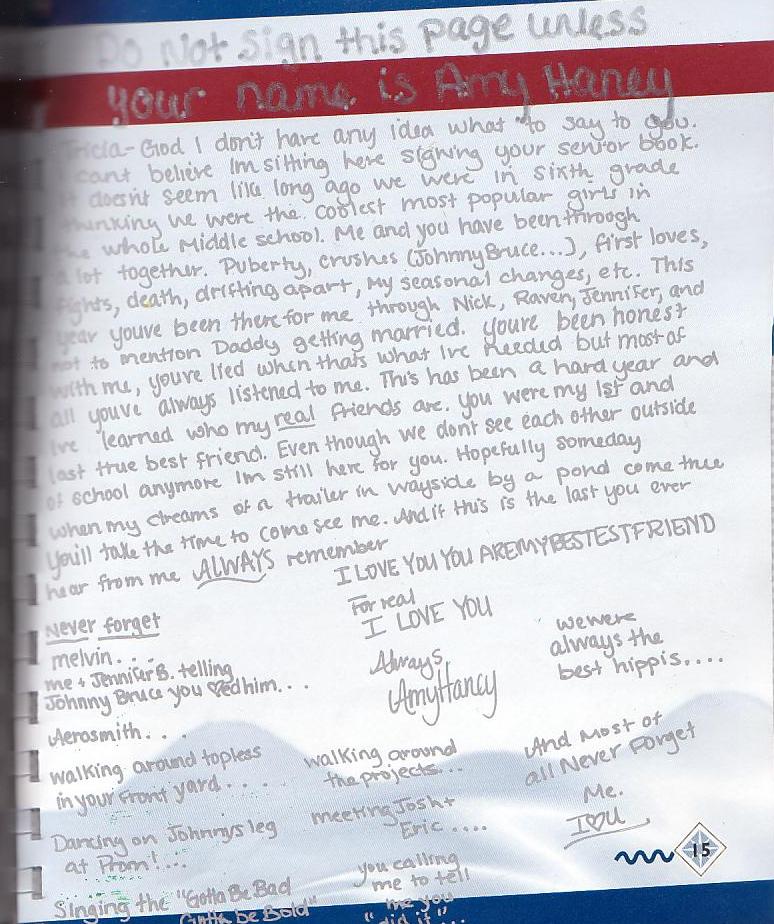 Do Not Sign this page unless
your name is Amy Haney
Tricia- God I don't have any idea what to say to you.
I cant believe Im sitting here signing your senior book.
It doesnt seem like long ago we were in sixth grade
thinking we were the coolest most popular girls in
the whole Middle school. Me and you have been through
a lot together. Puberty, crushes (Johnny Bruce...), first loves,
fights, death, drifting apart, my seasonal changes, etc. This
year youve been there for me through Nick, Raven, Jennifer, and
not to mention Daddy getting married. youre been honest
with me, youve lied when thats what Ive needed but most of
all youve always listened to me. This has been a hard year and
Ive learned who my real friends are. you were my 1st and
last true best friend. Even though we dont see each other outside
of school anymore Im still here for you. Hopefully someday
when my dreams of a trailer in Wayside by a pond come true
You'll take the time to come see me. And if this is the last you ever
hear from me ALWAYS remember
I LOVE YOU YOU ARE MY BESTEST FRIEND
For real
I LOVE YOU
Always,
Amy Haney
Never forget
melvin...
me + Jennifer B. telling
Johnny Bruce you ♡ed him...
Aerosmith...
walking around topless
in your front yard....
Dancing on Johnnys leg
at Prom!...
Singing the "Gotta Be Bad
Gotta be Bold"
walking around
the projects...
meeting Josh +
Eric....
you calling
me to tell
me you
"did it"...
we were
always the
best hippis....
And Most of
all Never Forget
Me.
I ♡ U
15